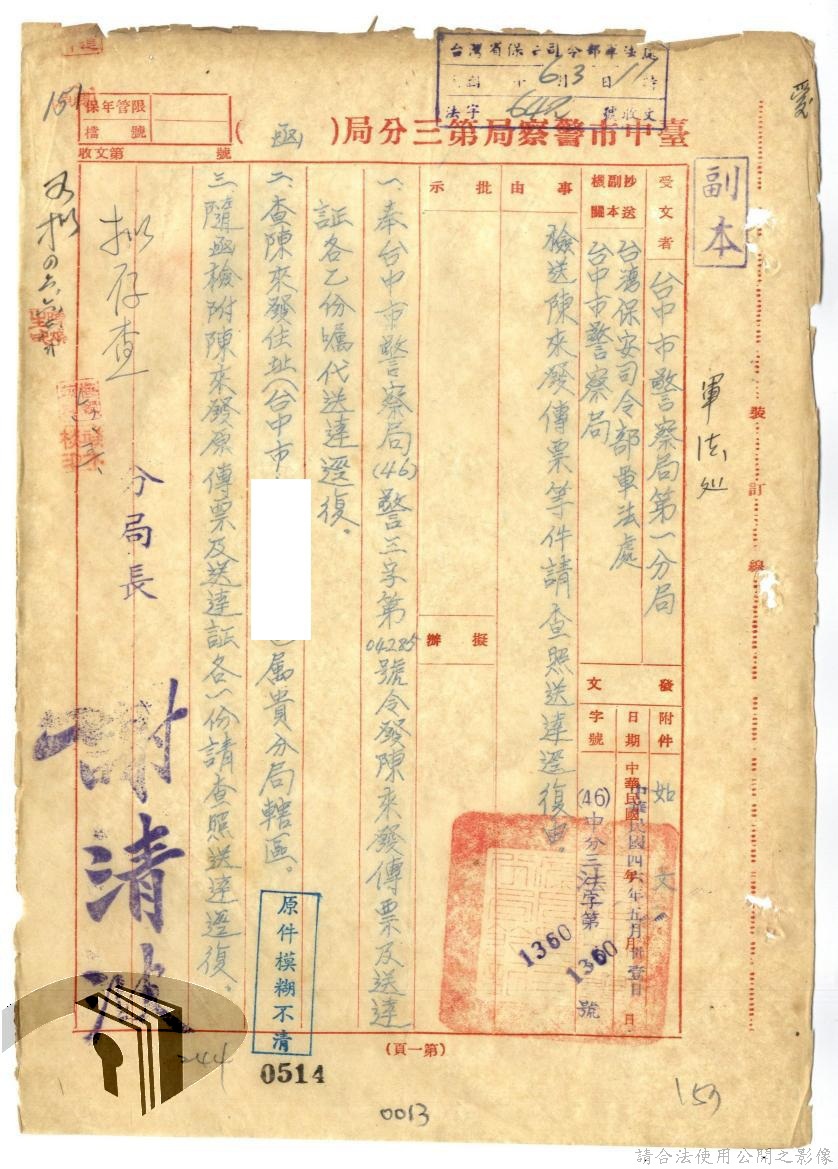 臺中市警察局第三分局(函)
副本
保存年限
檔號
收文第 號
台灣省保安司令部軍法處
6月3日17時
法字 號收文
愛
軍法処
裝訂線
受文者 台中市警察局第一分局
抄送副本機關 台灣保安司令部軍法處
台中市警察局
事由 檢送陳來發傳票等件請查照送達逕復由。
批示
擬辦
發文
附件 如文
日期 中華民國四六年五月卅壹日
字號 (46)中分三法字第1360號
1360
一、奉台中市警察局(46)警三字第04285號令發陳來發傳票及送達
証各乙份囑代送達逕復。
二、查陳來發住址(台中市 屬貴分局轄區。
三、隨函檢附陳來發原傳票及送達証各一份請查照送達逕復。
分局長 謝清波
擬存查
151
原件模糊不清
(第一頁)
244
0514
0013
159
請合法使用公開之影像